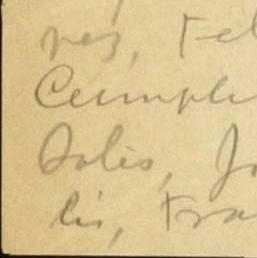 rez, Fel
Cumpli
Solis, Jo
lis, Fra